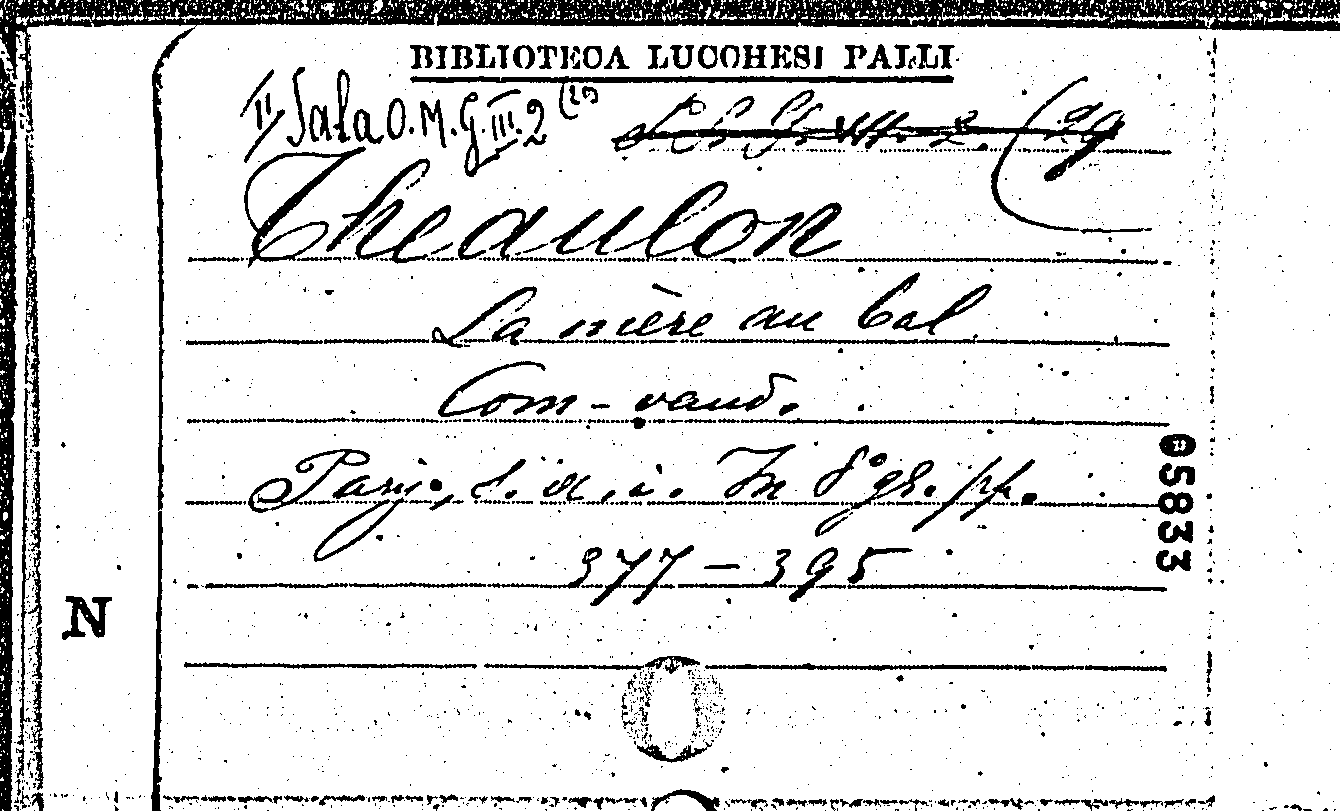 BIBLIOTECA LUCCHESI PALLI
II Sala O. M. G. III. 2 (29
Theaulon
La mère au bal
Com-vaud.
Parig., s. a. i. In 8° gr. pp.
377 – 395
05833
N